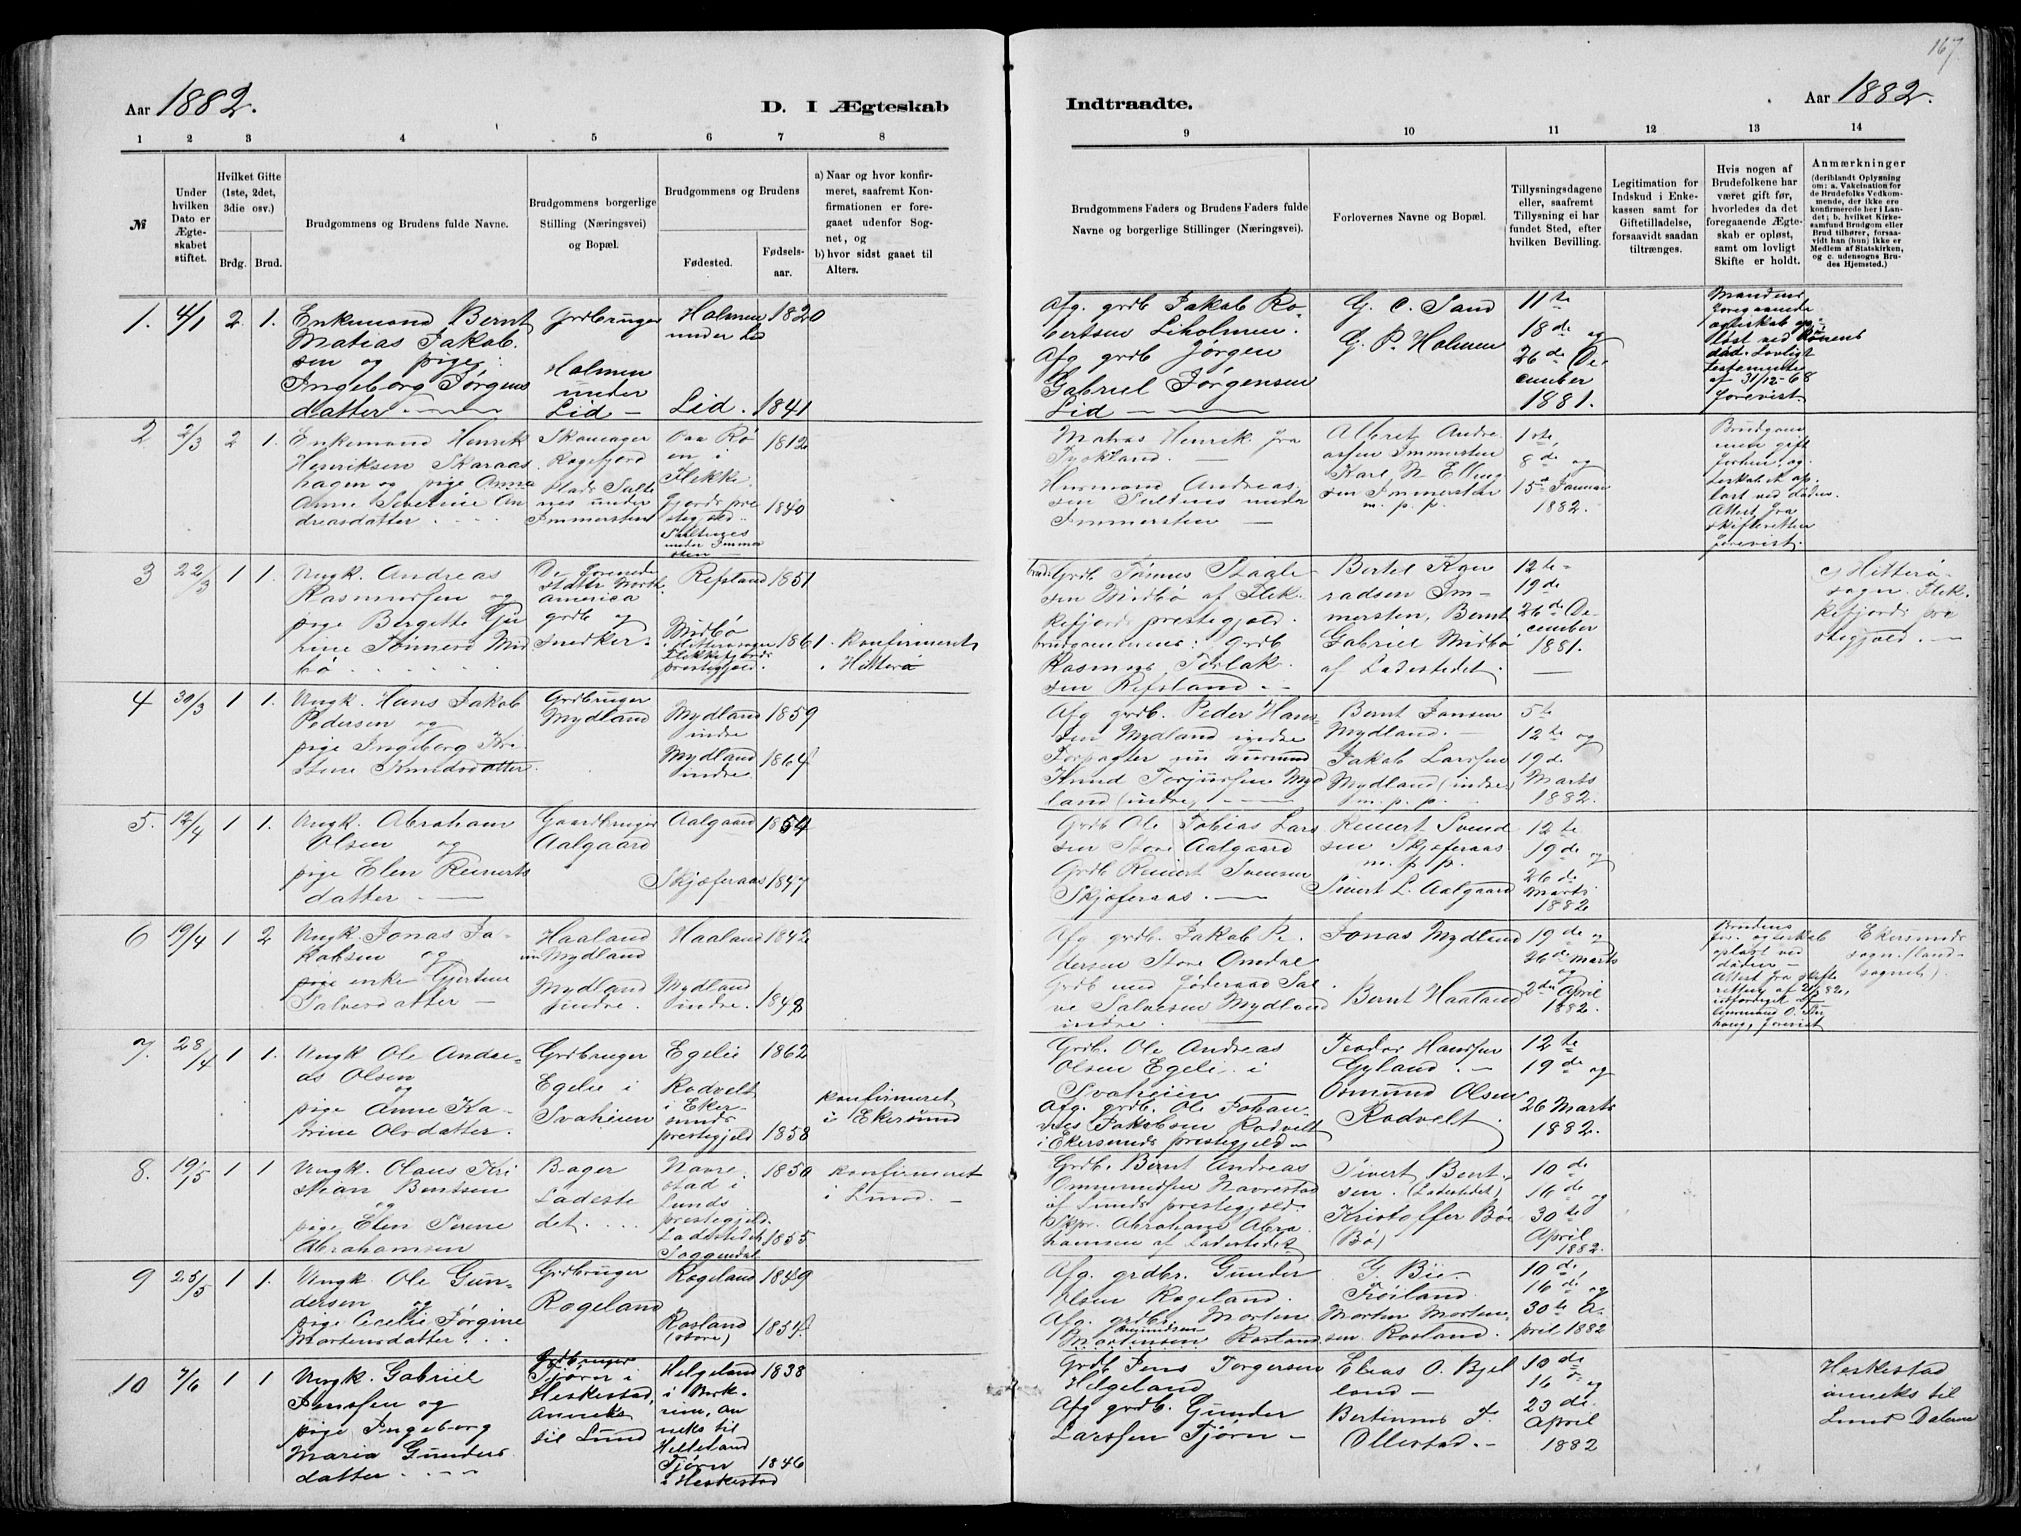 167
Aar 1882.
D. I Ægteskab
Indtraadte.
Aar 1882.
1 2 3 4 5 6 7 8
9 10 11 12 13 14
№
Under hvilken Dato er Ægteskabet stiftet.
Hvilket Gitte (1ste, 2det, 3die osv.)
Brdg. Brud.
Brudgommens og Brudens fulde Navne.
Brudgommens borgerlige Stilling (Næringsvei) og Bopæl.
Brudgommens og Brudens
Fødested.
Fødsels-aar.
a) Naar og hvor konfirmeret, saafremt Konfirmationen er foregaaet udenfor Sognet, og
b) hvor sidst gaaet til Alters.
Brudgommens Faders og Brudens Faders fulde Navne og borgerlige Stillinger (Næringsvei).
Forlovernes Navne og Bopæl.
Tillysningsdagene eller, saafremt Tillysning ei har fundet Sted, efter hvilken Bevilling.
Legitimation for Indskud i Enkekassen samt for Giftetilladelse, forsaavidt saadan tiltrænges.
Hvis nogen af Brudefolkene har været gift før, hvorledes da det foregaaende Ægteskab er opløst, samt om lovligt Skifte er holdt.
Anmærkninger (deriblandt Oplysning om: a. Vakcination for de Brudefolks Vedkommende, der ikke ere konfirmerede her i Landet; b. hvilket Kirkesamfund Brudgom eller Brud tilhører, forsaavidt han (hun) ikke er Medlem af Statskirken, og c. udensogns Brudes Hjemsted.)
1. 4/1 2. 1.
Enkemand Bernt
Matias Jakob
sen og pige:
Ingeborg Jørgens
datter.
Grdbruger
Holmen
under
Lid
Holmen 1820
under Lid
Lid. 1841
Afg. grdb Jakob Ro
bertsen Liholmen.
Afg grdb Jørgen
Gabriel Jørgensen
Lid
G. C. Sand
G. P. Holmen
11te
18de og
26de De
cember
1881.
Mandens
foregaaende
ægteskab op
løst ved Konens
død. Lovligt
testamente
af 31/12-68
forevist.
2 2/3 2 1.
Enkemand Henrik
Henriksen Skaraas
hagen og pige Anna
Anne Severine An
dreasdatter.
Ragefjord
Plads Salt
nes under
Immersten
i
Flekke
fjords pre
stegjeld.
Saltnes
under Immer
sten
1812
1840
Matias Henrik fra
Husmand Andreas
sen Saltnes under
Immersten
Albret Andre
assen Immersten
Karl N. Elling
sen Immersten
m. p. p.
1ste,
8de og
15de Januar
1882.
Brudgom
men gift
forhen, eg
teskabet op
løst ved døden.
Attest fra
skifteretten
forevist.
3 22/3 1 1.
Ungk. Andreas
Rasmussen og
pige Bergette Gju
rine Tønnesd Mid
bø
De Forenede
stater North
america
grdb og
snedker.
Refsland 1851
Midbø 1861.
i Hitterø sogn
Flekkefjords
prestegjeld.
konfirmeret
i Hitterø
brud: Grdb Tønnes Staale
sen Midbø af Flek
kefjords prestegjeld.
brudgommens: grdb
Rasmus Torlak
sen Refsland.
Bertel Kon
radsen Im
mersten, Bernt
Gabriel Midbø
af Ladestedet.
12te
19de
26de De
cember
1881.
c) Hitterø
sogn. Flek
kefjords pre
stegjeld.
4 30/3 1 1.
Ungk. Hans Jakob
Pedersen og
pige Ingeborg Kri
stine Knudsdatter.
Grdbruger
Mydland
Mydland 1859
indre
Mydland 1864
indre
Afg grdb. Peder Han
sen Mydland indre
Forpagter nu husmand
Knud Torjussen Myd
land (indre)
Bernt Jansen
Mydland.
Jakob Larssen
Mydland (indre)
m. p. p.
5te
12te og
19de
Marts
1882.
5. 12/4 1 1.
Ungk. Abraham
Olsen og
pige Elen Reinerts
datter.
Gaardbruger
Aalgaard
Aalgaard 1854
Skjæferaas 1847
Grdb Ole Tobias Lars
sen Store Aalgaard
Grdb Reinert Svensen
Skjæferaas.
Reinert Svend
sen Skjæferaas
m. p. p.
Sivert L. Aalgaard
12te
19de og
26de
Marts
1882
6 19/4 1 2
Ungk. Jonas Ja
kobsen og
pige enke Gjertine
Salvesdatter
Haaland
nu Mydland
Mydland
indre.
Haaland 1842
Mydland
indre. 1848
Afg grdb. Jakob Pe
dersen Store Omdal
Grdb med føderaad Sal
ve Salvesen Mydland
indre.
Jonas Mydland
Bernt Haaland
19de og
26de Marts
og
2den April
1882.
Brudens
før. egteskab
opløst ved
døden
Attest fra skifte
retten af
forevist
Ekersunds
sogn. (land
sognet).
7. 28/4 1 1.
Ungk Ole Andre
as Olsen
og
pige Anne Ka
trine Olsdatter.
Grdbruger
Egelie i
Svaheien
Egelie 1862
Rodvelt
i Eker
sunds
prestegjeld 1858
konfirmeret
i Ekersund
Grdb. Ole Andreas
Olsen Egelie i
Svaheien
Afg. grdb. Ole Johan
nes Jakobsen Rodvelt
i Ekersunds prestegjeld
Teodor Hansen
Gyland.
Osmund Olsen
Rodvelt
12te
19de og
26 Marts
1882.
8. 19/5 1 1
Ungk. Olaus Kri
stian Bentsen
og
pige Elen Serine
Abrahamsen
Bager
Ladeste
det.
Navre 1850
stad i
Lunds
prestegjeld.
Ladestedet 1855
Soggendal
konfirmeret
i Lund.
Grdb. Bernt Andreas
Ommundsen Navrestad
af Lunds prestegjeld.
Skpr. Abraham Abra
hamsen af Ladestedet
Sivert Bent
sen. (Ladestedet)
Kristoffer Bøe
Bø)
10de
16de og
30te
April
1882.
9 25/5 1 1.
Ungk Ole Gun
dersen og
pige Cecelie Jørgine
Mortensdatter.
Grdbruger
Rogeland
Rogeland 1849
Rosland
(store) 1854
Afg. grdbr. Gunder
Olsen Rogeland.
Afg. grdb. Morten
Mortensen Rosland
Frøiland.
Morten Morten
sen. Rosland.
10de,
16de og
30te A
pril 1882
10 7/6 1 1
Ungk. Gabriel
Jensen og
pige Ingeborg
Maria Gunders
datter.
Grdbruger
Tjørn i
Heskestad,
Anneks
til Lund
Helgeland 1838
i Berk
rem, an
neks til
Helleland
Tjørn 1846
i Heskestad
Grdb Jens Torgersen
Helgeland
Afg grdb. Gunder
Larssen Tjørn
Elias O. Bjel
land
Bertinius T.
Ollestad.
10de
16 og
23de
April
1882
Heskestad
anneks til
Lund Dalerne